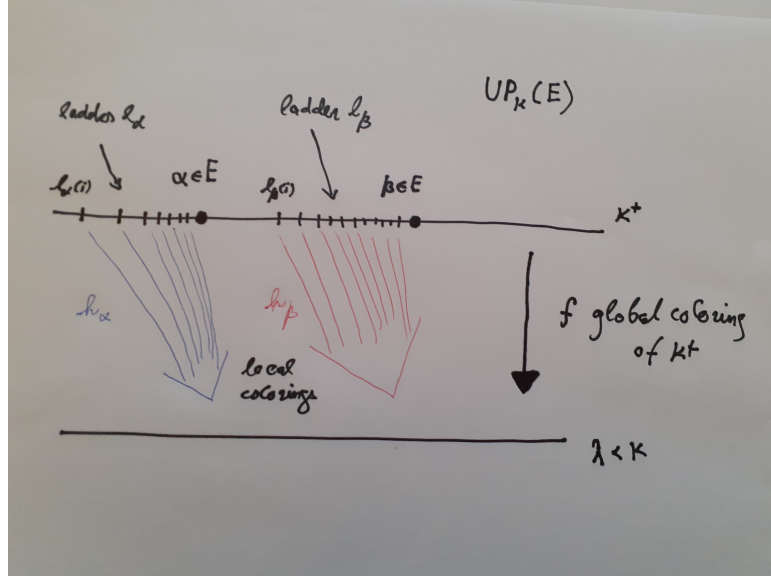 UPκ(E)
ladder lα
ladder lβ
lα(i)
α∈E
lβ(i)
β∈E
κ+
hα
hβ
local
colorings
f global coloring
of κ+
λ<κ